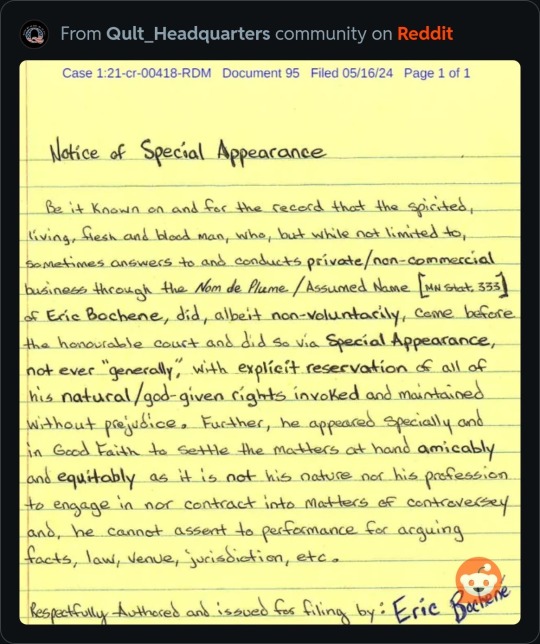 From Qult_Headquarters community on Reddit
Case 1:21-cr-00418-RDM Document 95 Filed 05/16/24 Page 1 of 1
Notice of Special Appearance
Be it known on and for the record that the spirited,
living, flesh and blood man, who, but while not limited to,
sometimes answers to and conducts private/non-commercial
business through the Nom de Plume / Assumed Name [MN Stat. 333]
of Eric Bochene, did, albeit non-voluntarily, come before
the honourable court and did so via Special Appearance,
not ever "generally," with explicit reservation of all of
his natural/god-given rights invoked and maintained
without prejudice. Further, he appeared specially and
in Good Faith to settle the matters at hand amicably
and equitably as it is not his nature nor his profession
to engage in nor contract into matters of controversey
and, he cannot assent to performance for arguing
facts, law, venue, jurisdiction, etc.
Respectfully Authored and issued for filing by: Eric Bochene